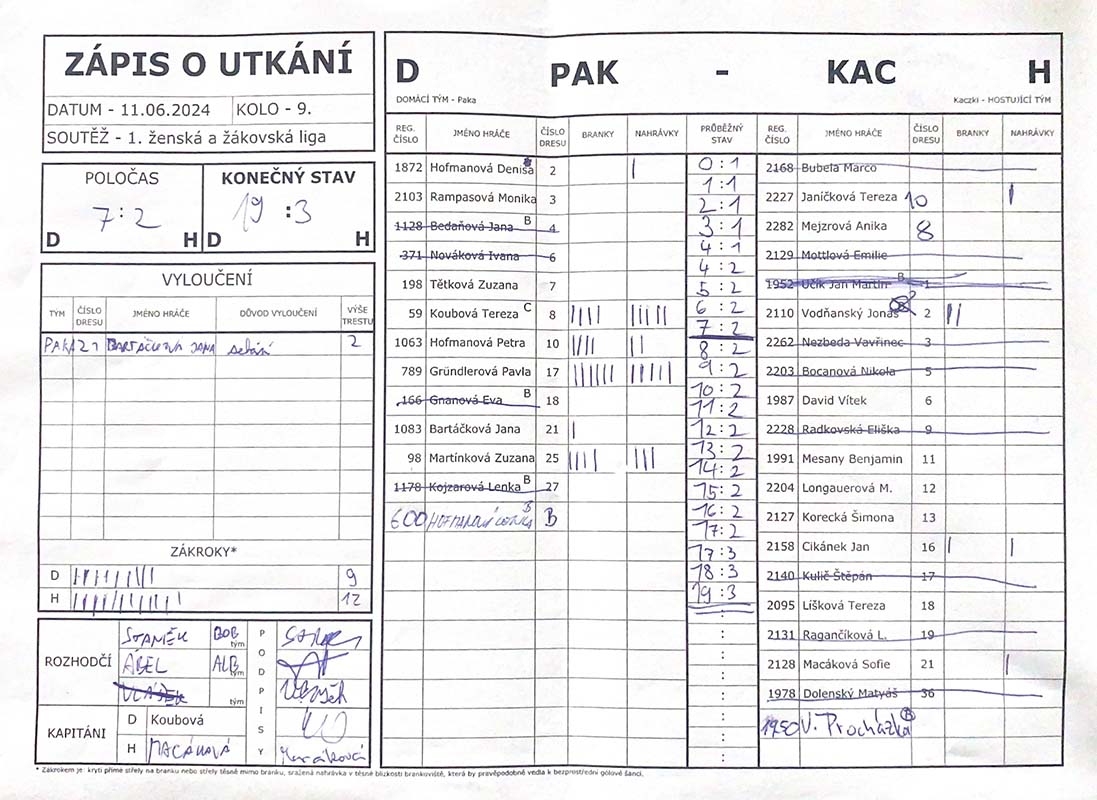 ZÁPIS O UTKÁNÍ
DATUM - 11.06.2024 KOLO - 9.
SOUTĚŽ - 1. ženská a žákovská liga
POLOČAS KONEČNÝ STAV
7:2 19 :3
D H D H
VYLOUČENÍ
TÝM ČÍSLO DRESU JMÉNO HRÁČE DŮVOD VYLOUČENÍ VÝŠE TRESTU
PAK 21 BARTÁČKOVÁ JANA sekání 2
ZÁKROKY*
D 9
H 12
ROZHODČÍ
STANĚK BOB tým
ÁBEL ALB tým
VLÁSEK tým
PODPISY
KAPITÁNI
D Koubová
H MACÁKOVÁ
D PAK - KAC H
DOMÁCÍ TÝM - Paka Kaczki - HOSTUJÍCÍ TÝM
REG. ČÍSLO JMÉNO HRÁČE ČÍSLO DRESU BRANKY NAHRÁVKY PRŮBĚŽNÝ STAV REG. ČÍSLO JMÉNO HRÁČE ČÍSLO DRESU BRANKY NAHRÁVKY
1872 Hofmanová Denisa 2 |
2103 Rampasová Monika 3
1128 Bedaňová Jana B 4
371 Nováková Ivana 6
198 Tětková Zuzana 7
59 Koubová Tereza C 8 |||| |||||
1063 Hofmanová Petra 10 |||| ||
789 Gründlerová Pavla 17 |||||| |||||
166 Gnanová Eva B 18
1083 Bartáčková Jana 21 |
98 Martínková Zuzana 25 |||| |||
1178 Kojzarová Lenka B 27
600 HOFMANOVÁ B B
0:1
1:1
2:1
3:1
4:1
4:2
5:2
6:2
7:2
8:2
9:2
10:2
11:2
12:2
13:2
14:2
15:2
16:2
17:2
17:3
18:3
19:3
2168 Bubela Marco
2227 Janíčková Tereza 10 |
2282 Mejzrová Anika 8
2129 Mottlová Emilie
1952 Učík Jan Martin B 1
2110 Vodňanský Jonáš 2 ||
2262 Nezbeda Vavřinec 3
2203 Bocanová Nikola 5
1987 David Vítek 6
2228 Radkovská Eliška 9
1991 Mesany Benjamin 11
2204 Longauerová M. 12
2127 Korecká Šimona 13
2158 Cikánek Jan 16 | |
2140 Kulič Štěpán 17
2095 Líšková Tereza 18
2131 Ragančíková L. 19
2128 Macáková Sofie 21 |
1978 Dolenský Matyáš 36
1950 V. Procházka B
* Zákrokem je: krytí přímé střely na branku nebo střely těsně mimo branku, sražená nahrávka v těsné blízkosti brankoviště, která by pravěpodobně vedla k bezprostřední gólové šanci.